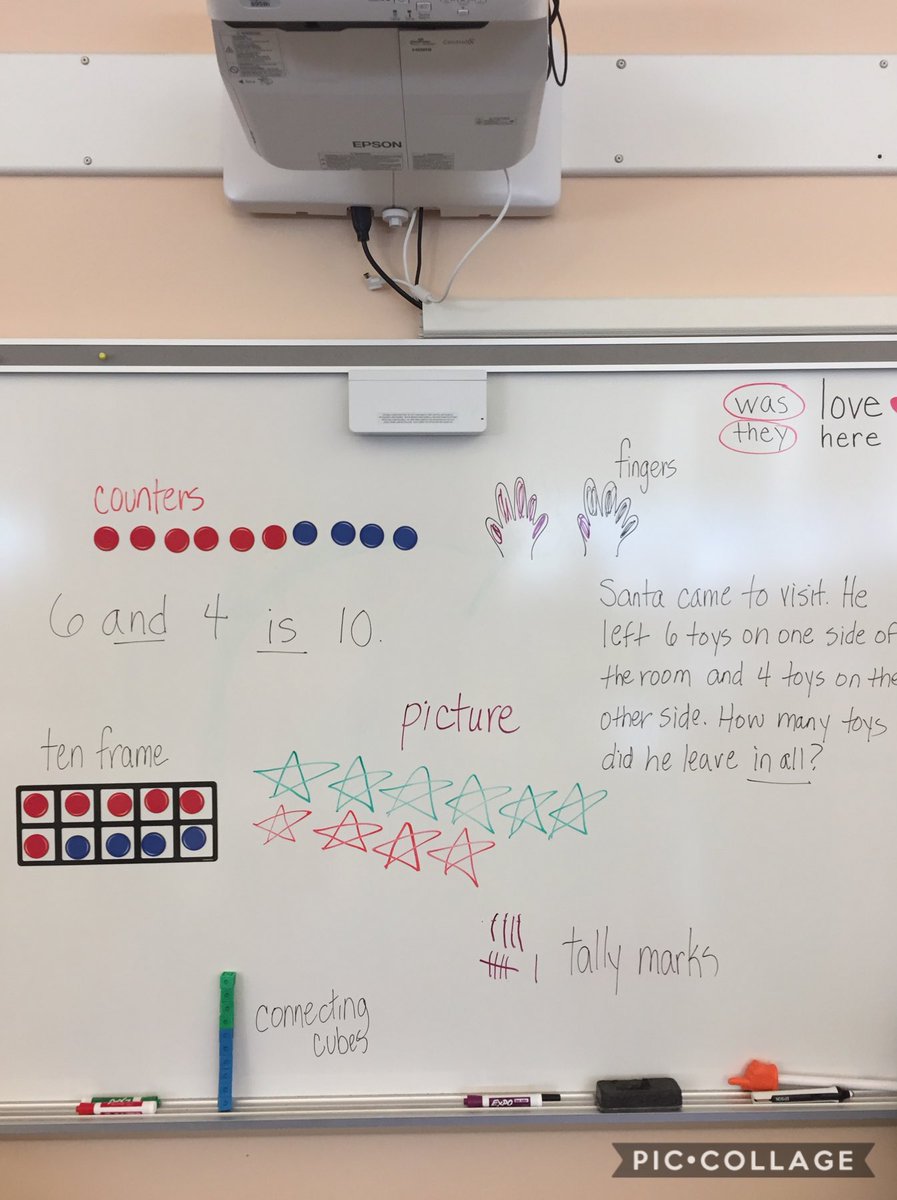 EPSON
HDMI
was love
they here
fingers
counters
6 and 4 is 10.
Santa came to visit. He
left 6 toys on one side of
the room and 4 toys on the
other side. How many toys
did he leave in all?
picture
ten frame
tally marks
connecting
cubes
EXPO
PIC•COLLAGE